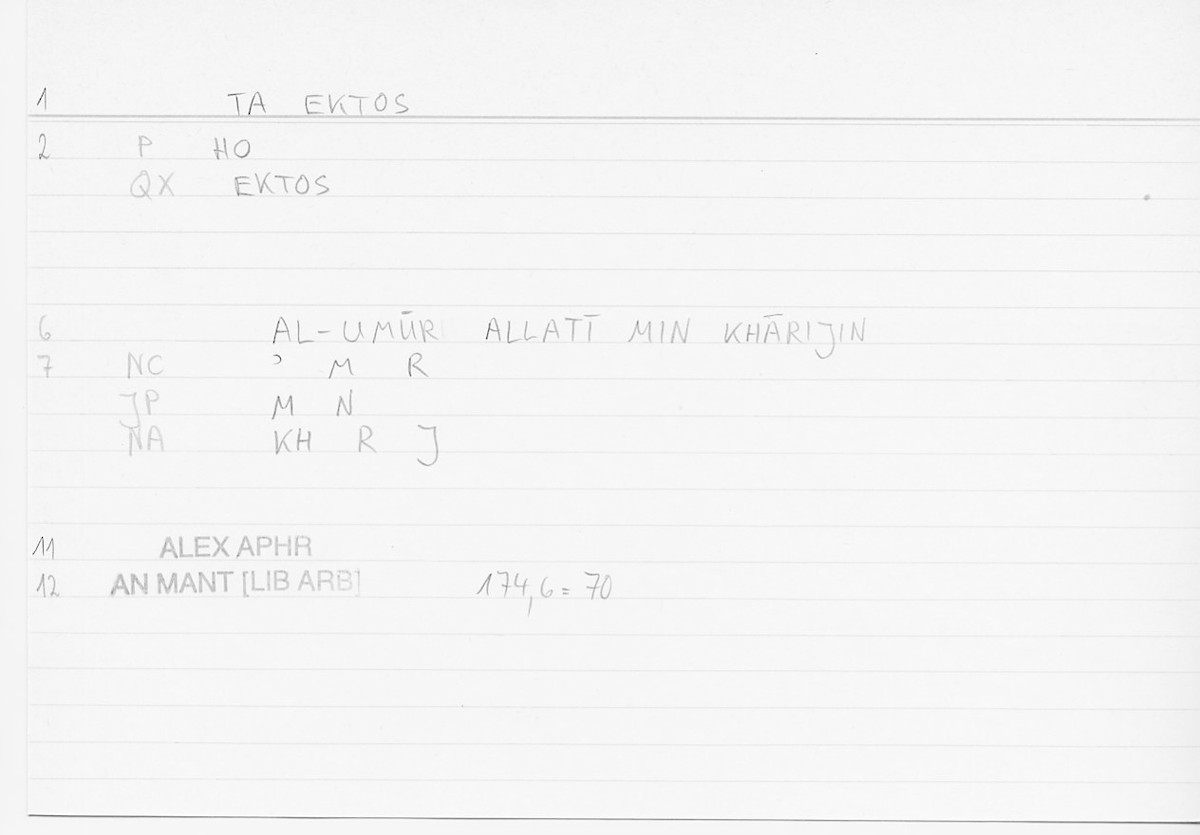 1 TA EKTOS
2 P HO
QX EKTOS
6 AL-UMŪR ALLATĪ MIN KHĀRIJIN
7 NC ʾ M R
JP M N
NA KH R J
11 ALEX APHR
12 AN MANT [LIB ARB] 174,6 = 70